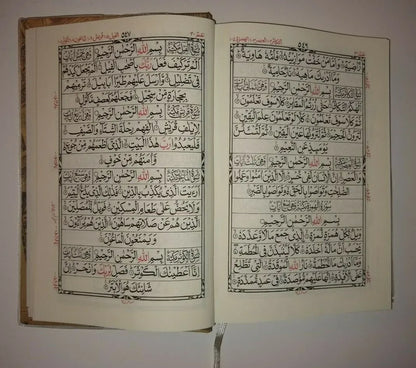 ٥٤٦
وَاَمَّا مَنْ خَفَّتْ مَوَازِيْنُهٗ فَاُمُّهٗ هَاوِيَةٌ
وَمَاۤ اَدْرٰىكَ مَاهِيَهْ نَارٌ حَامِيَةٌ
بِسْمِ اللهِ الرَّحْمٰنِ الرَّحِيْمِ
اَلْهٰىكُمُ التَّكَاثُرُ حَتّٰى زُرْتُمُ الْمَقَابِرَ كَلَّا سَوْفَ تَعْلَمُوْنَ
ثُمَّ كَلَّا سَوْفَ تَعْلَمُوْنَ كَلَّا لَوْ تَعْلَمُوْنَ عِلْمَ الْيَقِيْنِ
لَتَرَوُنَّ الْجَحِيْمَ ثُمَّ لَتَرَوُنَّهَا عَيْنَ الْيَقِيْنِ ثُمَّ لَتُسْـَٔلُنَّ
يَوْمَئِذٍ عَنِ النَّعِيْمِ
بِسْمِ اللهِ الرَّحْمٰنِ الرَّحِيْمِ
وَالْعَصْرِ اِنَّ الْاِنْسَانَ لَفِيْ خُسْرٍ اِلَّا الَّذِيْنَ اٰمَنُوْا وَعَمِلُوا
الصّٰلِحٰتِ وَتَوَاصَوْا بِالْحَقِّ وَتَوَاصَوْا بِالصَّبْرِ
بِسْمِ اللهِ الرَّحْمٰنِ الرَّحِيْمِ
وَيْلٌ لِّكُلِّ هُمَزَةٍ لُّمَزَةٍ الَّذِيْ جَمَعَ مَالًا وَّعَدَّدَهٗ
يَحْسَبُ اَنَّ مَالَهٗۤ اَخْلَدَهٗ كَلَّا لَيُنْۢبَذَنَّ فِي الْحُطَمَةِ
وَمَاۤ اَدْرٰىكَ مَا الْحُطَمَةُ نَارُ اللهِ الْمُوْقَدَةُ الَّتِيْ تَطَّلِعُ
عَلَى الْاَفْـِٕدَةِ اِنَّهَا عَلَيْهِمْ مُّؤْصَدَةٌ فِيْ عَمَدٍ مُّمَدَّدَةٍ
٥٤٧
بِسْمِ اللهِ الرَّحْمٰنِ الرَّحِيْمِ
اَلَمْ تَرَ كَيْفَ فَعَلَ رَبُّكَ بِاَصْحٰبِ الْفِيْلِ اَلَمْ يَجْعَلْ كَيْدَهُمْ
فِيْ تَضْلِيْلٍ وَّاَرْسَلَ عَلَيْهِمْ طَيْرًا اَبَابِيْلَ تَرْمِيْهِمْ
بِحِجَارَةٍ مِّنْ سِجِّيْلٍ فَجَعَلَهُمْ كَعَصْفٍ مَّاْكُوْلٍ
بِسْمِ اللهِ الرَّحْمٰنِ الرَّحِيْمِ
لِاِيْلٰفِ قُرَيْشٍ اٖلٰفِهِمْ رِحْلَةَ الشِّتَآءِ وَالصَّيْفِ
فَلْيَعْبُدُوْا رَبَّ هٰذَا الْبَيْتِ الَّذِيْۤ اَطْعَمَهُمْ مِّنْ جُوْعٍ
وَّاٰمَنَهُمْ مِّنْ خَوْفٍ
بِسْمِ اللهِ الرَّحْمٰنِ الرَّحِيْمِ
اَرَءَيْتَ الَّذِيْ يُكَذِّبُ بِالدِّيْنِ فَذٰلِكَ الَّذِيْ يَدُعُّ الْيَتِيْمَ
وَلَا يَحُضُّ عَلٰى طَعَامِ الْمِسْكِيْنِ فَوَيْلٌ لِّلْمُصَلِّيْنَ
الَّذِيْنَ هُمْ عَنْ صَلَاتِهِمْ سَاهُوْنَ الَّذِيْنَ هُمْ يُرَآءُوْنَ
وَيَمْنَعُوْنَ الْمَاعُوْنَ
بِسْمِ اللهِ الرَّحْمٰنِ الرَّحِيْمِ
اِنَّاۤ اَعْطَيْنٰكَ الْكَوْثَرَ فَصَلِّ لِرَبِّكَ وَانْحَرْ اِنَّ
شَانِئَكَ هُوَ الْاَبْتَرُ